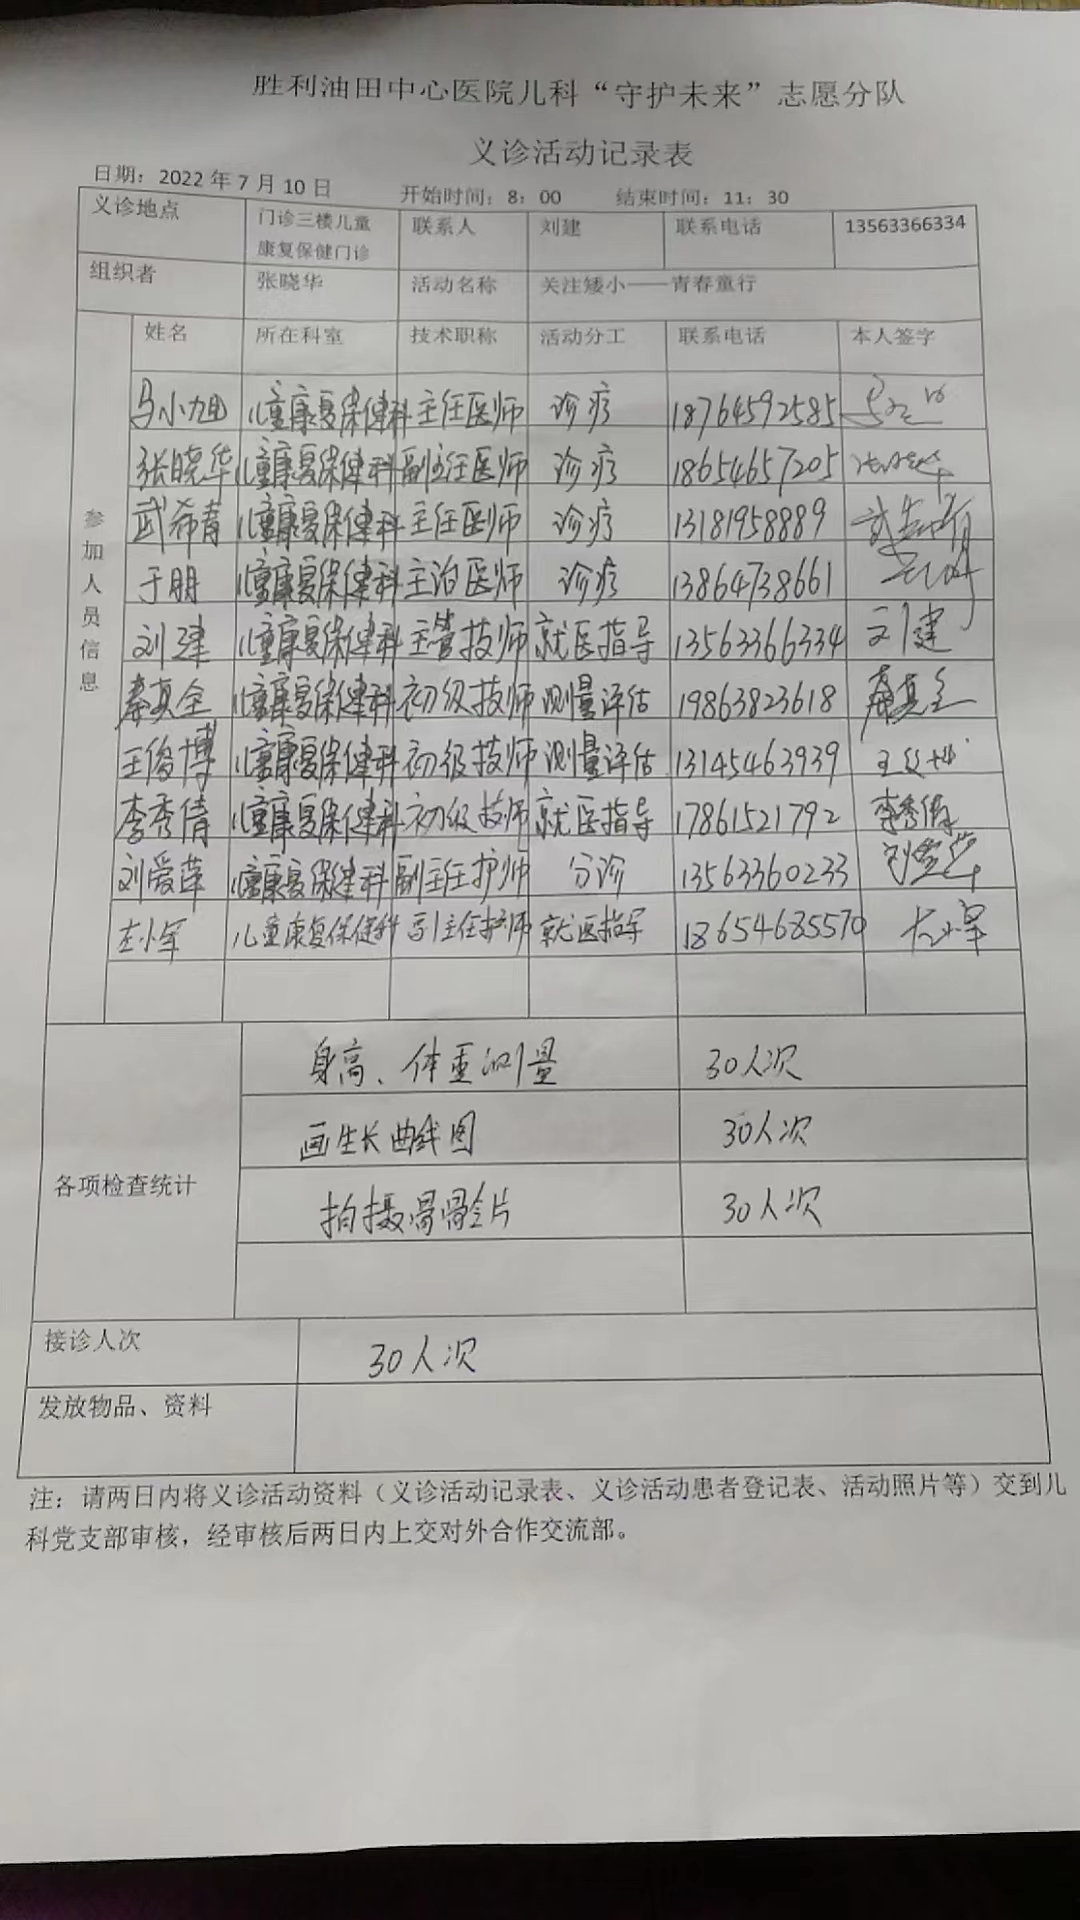 胜利油田中心医院儿科“守护未来”志愿分队
义诊活动记录表
日期：2022 年 7 月 10 日 开始时间：8：00 结束时间：11：30
义诊地点 门诊三楼儿童康复保健门诊 联系人 刘建 联系电话 13563366334
组织者 张晓华 活动名称 关注矮小——青春童行
参加人员信息
姓名 所在科室 技术职称 活动分工 联系电话 本人签字
马小旭 儿童康复保健科 主任医师 诊疗 18764592585
张晓华 儿童康复保健科 副主任医师 诊疗 18654657205 张晓华
武希青 儿童康复保健科 主任医师 诊疗 13181958889 武希青
于朋 儿童康复保健科 主治医师 诊疗 13864738661
刘建 儿童康复保健科 主管技师 就医指导 13563366334 刘建
秦真全 儿童康复保健科 初级技师 测量评估 19863823618 秦真全
王俊博 儿童康复保健科 初级技师 测量评估 13145463939 王俊博
李秀倩 儿童康复保健科 初级技师 就医指导 17861521792 李秀倩
刘爱萍 儿童康复保健科 副主任护师 分诊 13563360233 刘爱萍
左小军 儿童康复保健科 副主任护师 就医指导 18654685570 左小军
各项检查统计
身高、体重测量 30人次
画生长曲线图 30人次
拍摄骨龄片 30人次
接诊人次 30人次
发放物品、资料
注：请两日内将义诊活动资料（义诊活动记录表、义诊活动患者登记表、活动照片等）交到儿
科党支部审核，经审核后两日内上交对外合作交流部。